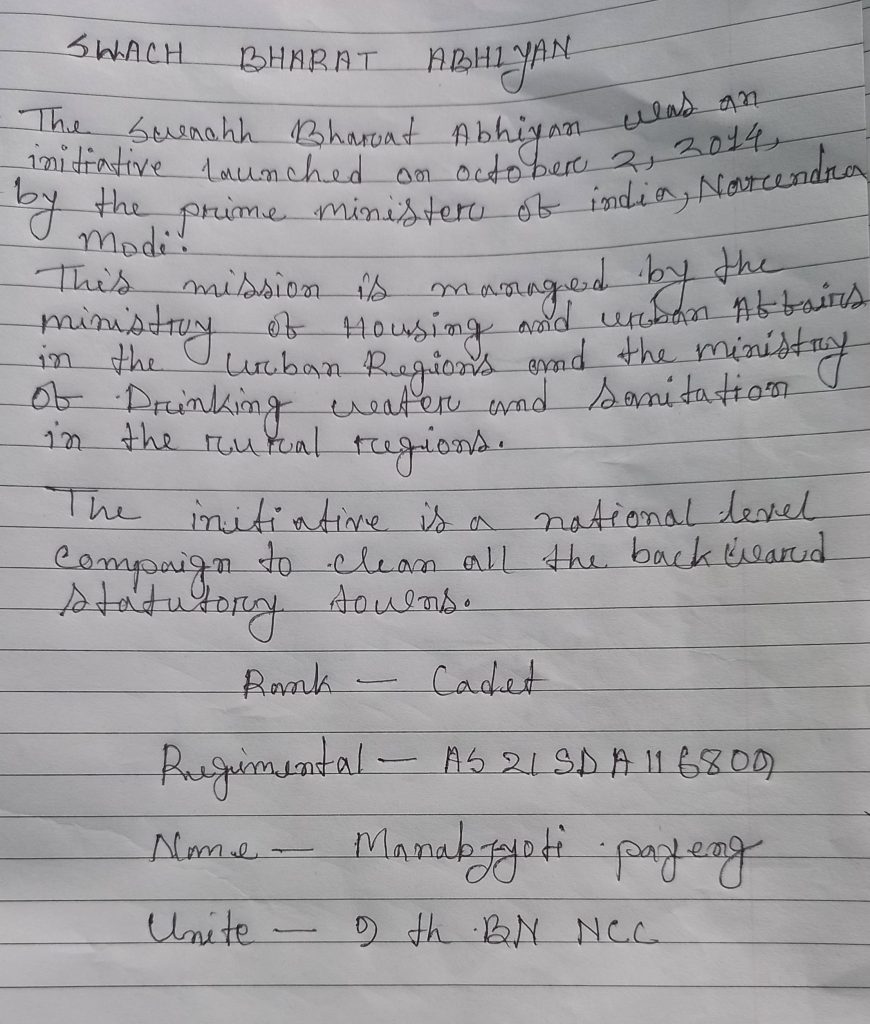 SWACH BHARAT ABHIYAN
The Swachh Bharat Abhiyan was an
initiative launched on october 2, 2014,
by the prime minister of india, Narendra
Modi.
This mission is managed by the
ministry of Housing and urban Affairs
in the Urban Regions and the ministry
of Drinking water and Sanitation
in the rural regions.
The initiative is a national level
Campaign to clean all the backward
statutory towns.
Rank — Cadet
Regimental — AS 21 SD A 116809
Name — Manabjyoti payeng
Unite — 9 th BN NCC